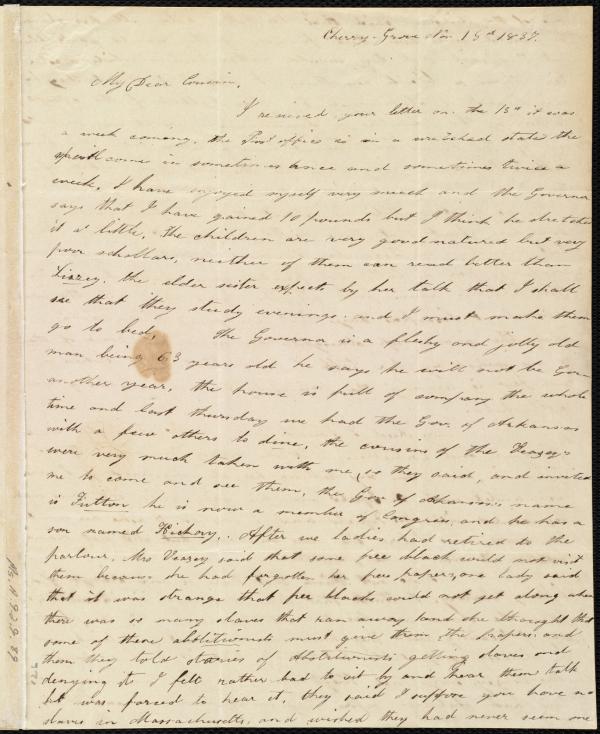 Cherry-Grove Nov. 18th 1837.
My Dear Cousin,
I received your letter on the 13th it was
a week coming, the Post office is in a wretched state the
mail come in sometimes once and sometimes twice a
week, I have enjoyed myself very much and the Governor
says that I have gained 10 pounds but I think he stretched
it a little, the children are very good natured but very
poor schollars, neither of them can read better than
Lizzey, the elder sister expects by her talk that I shall
see that they study evenings. and I must make them
go to bed, the Governor is a fleshy and jolly old
man being 63 years old he says he will not be Gov.
another year, the house is full of company the whole
time and last thursday we had the Gov. of Arkansas
with a few others to dine, the cousins of the Veazeys
were very much taken with me, so they said, and invited
me to come and see them, the Gov of Arkansas name
is Fulton he is now a member of Congress, and he has a
son named Hickory. After we ladies had retired to the
parlour, Mrs Veazey said that some free black could not visit
them because she had forgotten her free papers, one lady said
that it was strange that free blacks could not get along when
there was so many slaves that ran away, (and she thought that
some of these abolitionists must give them the papers, and
then they told stories of Abolitionists getting slaves and
denying it, I felt rather bad to sit by and hear them talk
but was forced to hear it, they said I suppose you have no
slaves in Massachusetts, and wished they had never seen one
Ms. A. 9.2. 9. 89